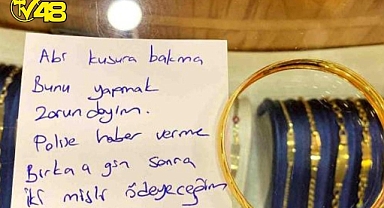 TV48
Abi kusura bakma
Bunu yapmak
Zorundayım.
Polise haber verme
Birkaç gün sonra
iki misli ödeyeceğim